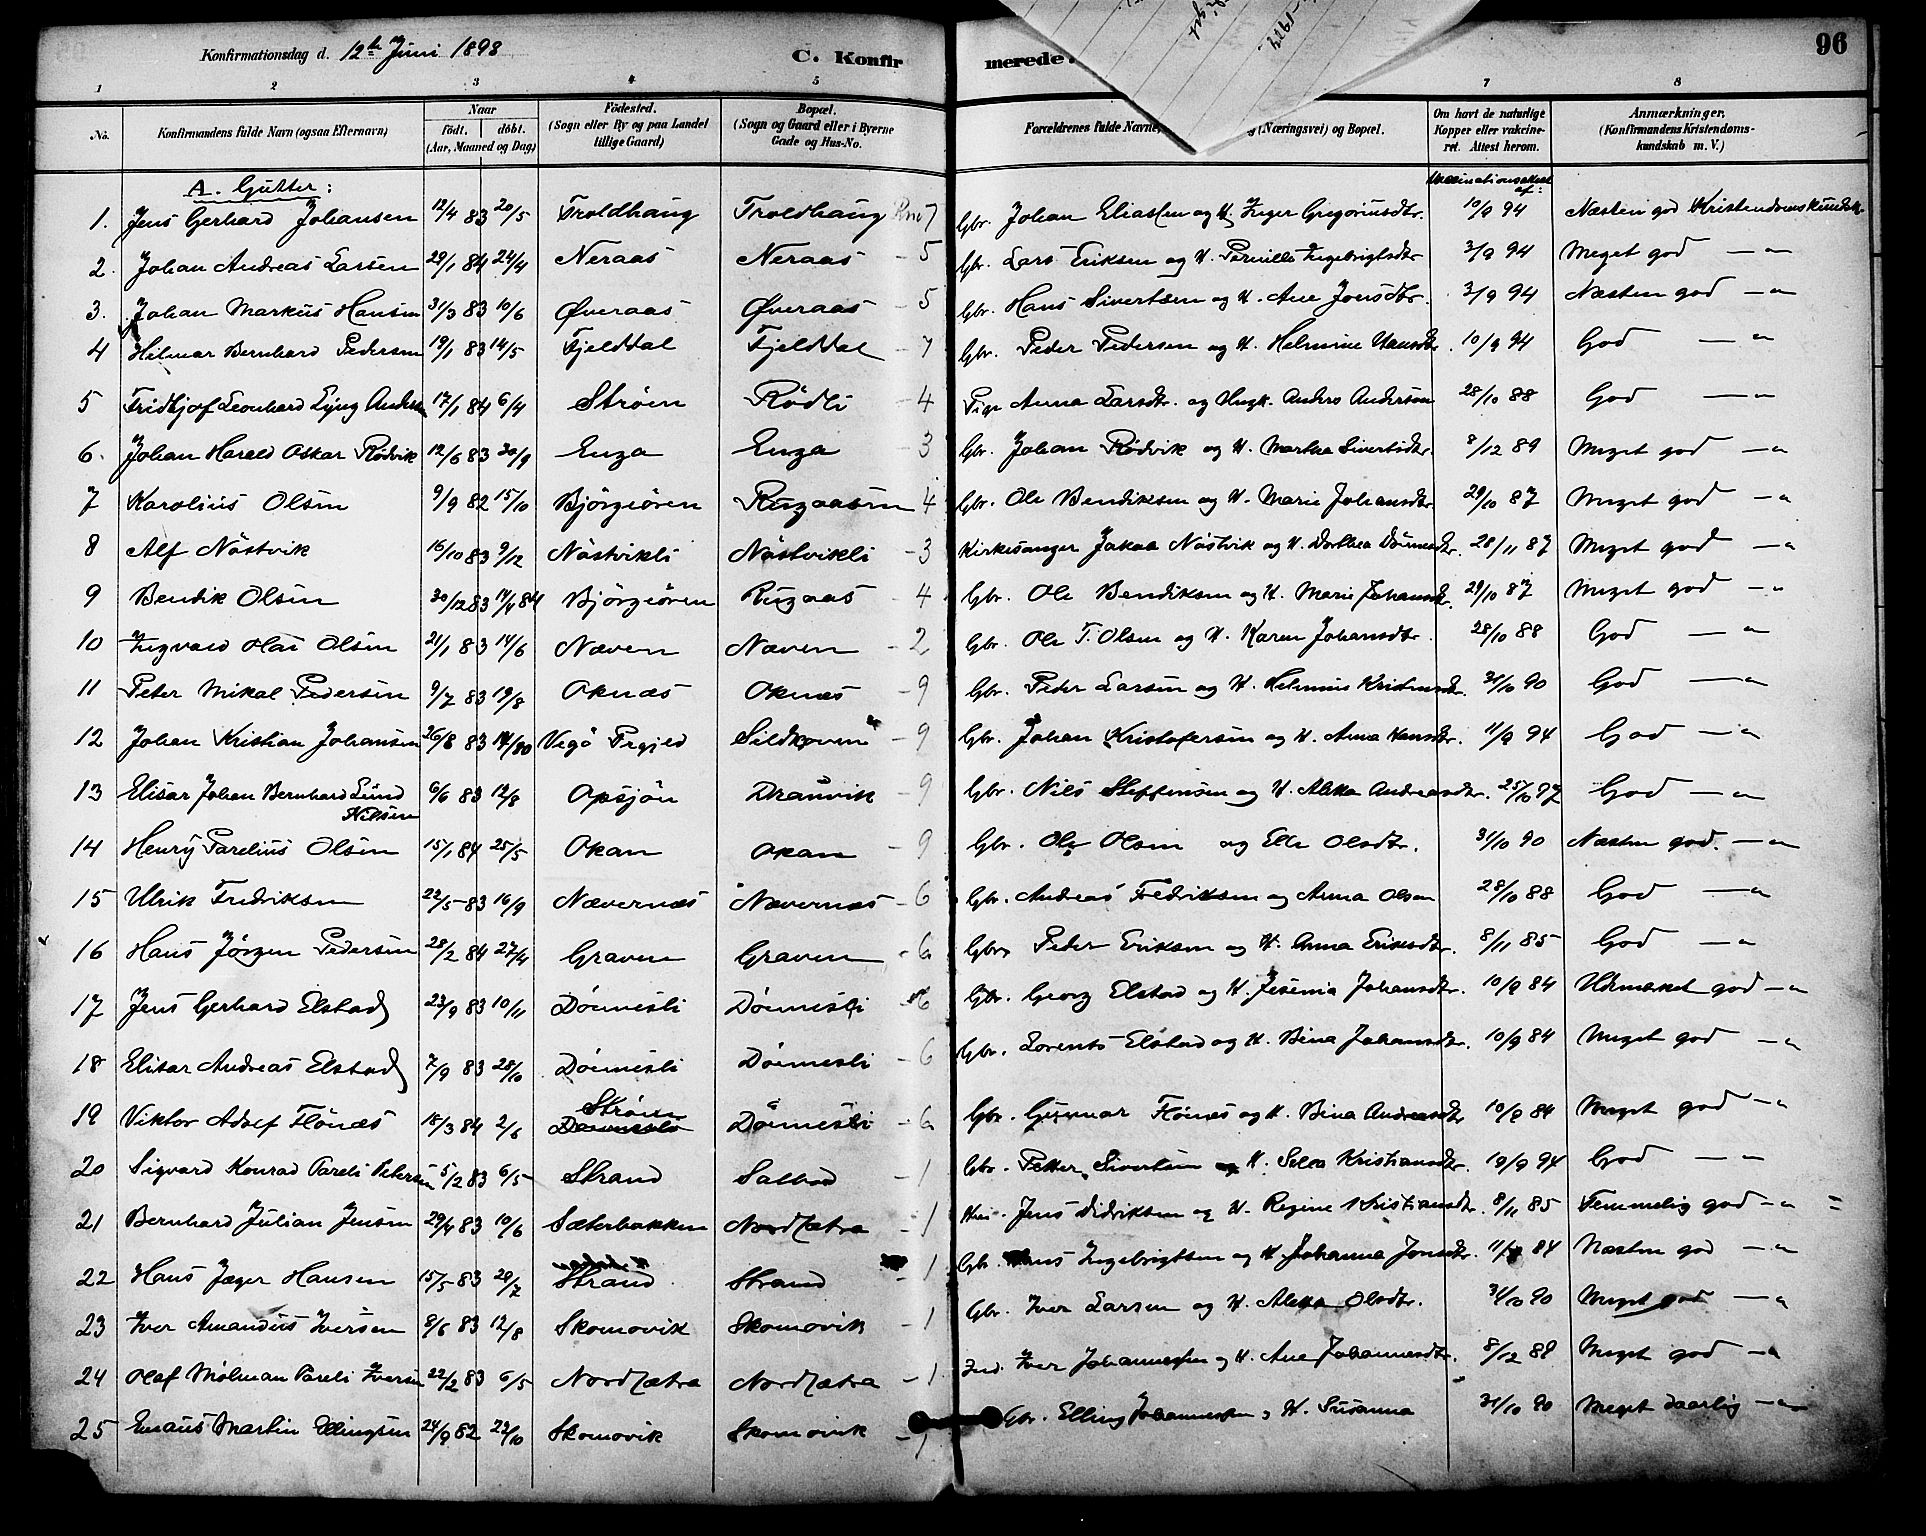 Konfirmationsdag d. 12te Juni 1898
C. Konfirmerede.
96
1 2 3 4 5 7 8
No. Konfirmandens fulde Navn (ogsaa Efternavn) Naar födt. döbt. (Aar, Maaned og Dag) Födested. (Sogn eller By og paa Landet tillige Gaard) Bopæl. (Sogn og Gaard eller i Byerne Gade og Hus-No. Forældrenes fulde Navne, (Næringsvei) og Bopæl. Om havt de naturlige Kopper eller vakcineret. Attest herom. Anmærkninger. (Konfirmandens Kristendomskundskab m. V.)
A. Gutter: Vaccinationsattest af:
1. Jens Gerhard Johansen 12/4 83 20/5 Troldhaug Troldhaug 7 Gbr. Johan Eliassen og H. Inger Gregoriusdtr. 10/9 94 Næsten god Kristendomskundsk.
2. Johan Andreas Larsen 29/1 84 24/4 Neraas Neraas - 5 Gbr. Lars Eriksen og H. Pernille Ingebrigtsdtr 3/9 94 Meget god — "
3. Johan Markus Hansen 31/3 83 10/6 Øveraas Øveraas - 5 Gbr. Hans Sivertsen og H. Ane Jonsdtr. 3/9 94 Næsten god — "
4 Hilmar Bernhard Pedersen 19/1 83 14/5 Fjelddal Fjelddal - 7 Gbr. Peder Pedersen og H. Helmine Hansdtr. 10/9 94 God — "
5 Fridtjof Leonhard Lyng Andersen 17/1 84 6/4 Strøen Rödli - 4 Pige Anna Larsdtr. og Ungk. Anders Anderson 28/10 88 God — "
6. Johan Harald Oskar Rödvik 12/6 83 30/9 Enga Enga - 3 Gbr. Johan Rödvik og H. Martha Sivertsdtr. 8/12 89 Meget god — "
7 Karolius Olsen 9/9 82 15/10 Björgiören Rugaasen 4 Gbr. Ole Bendiksen og H. Marie Johansdtr 29/10 87 Meget god — "
8 Alf Nästvik 16/10 83 9/12 Nästvikli Nästvikli - 3 Kirkesanger Jakob Nästvik og H. Dorthea 28/11 87 Meget god — "
9 Bendik Olsen 30/12 83 14/4 84 Björgiören Rugaas - 4 Gbr. Ole Bendiksen og H. Marie Johansdtr. 29/10 87 Meget god — "
10 Ingvald Olai Olsen 21/1 83 14/6 Næven Næven - 2 Gbr. Ole T. Olsen og H. Karen Johansdtr. 28/10 88 God — "
11 Peter Mikal Pedersen 9/7 83 19/8 Oknæs Oknæs - 9 Gbr. Peder Larsen og H. Helmine 31/10 90 God — "
12 Johan Kristian Johansen 26/8 83 Vegö Prgjeld Sildkoven - 9 Gbr. Johan Kristofersen og H. Anna Hansdtr. 11/9 94 God — "
13 Elisar Johan Bernhard Lund Nilsen 6/6 83 12/8 Opsjön - 9 Gbr. Nils Steffensen og H. Andreasdtr. 25/10 87 God — "
14 Henry Parelius Olsen 15/1 84 25/5 Okan Okan - 9 Gbr. Ole Olsen og Elle Olsdtr. 31/10 90 Næsten god. — "
15 Ulrik Fredriksen 22/5 83 16/9 Nævernæs Nævernæs - 6 Gbr. Andreas Fredriksen og Anna Olsen 28/10 88 God — "
16 Hans Jörgen Pedersen 28/2 84 27/4 Graven Graven - 6 Gbr. Peder Eriksen og H. Anna Eriksdtr. 8/11 85 God — "
17 Jens Gerhard Elstad 23/9 83 10/11 Dönnesli Dönnesli - 6 Gbr. Georg Elstad og H. Jesenia Johansdtr. 10/9 84 Udmærket god — "
18 Elisar Andreas Elstad 7/9 83 28/10 Dönnesli Dönnesli - 6 Gbr. Lorents Elstad og H. Bina Johansdtr. 10/9 84 Meget god — "
19 Viktor Adolf Flönæs 18/3 84 2/6 Strøen Dönnesli - 6 Gbr. Gunnar Flönæs og H. Bina Andreasdtr 10/9 84 Meget god — "
20 Sigvard Konrad Pareli Petersen 5/2 83 6/5 Strand - 1 Gbr. Petter Sivertsen og H. Kristiansdtr. 19/9 94 God — "
21 Bernhard Julian Jensen 29/4 83 10/6 Sæterbakken Nordsætra - 1 Jens Didriksen og H. Regine Kristiansdtr. 8/11 85 Temmelig god — "
22 Hans Jæger Hansen 15/5 83 29/7 Strand Strand - 1 Gbr. Hans Ingebrigtsen og H. Johanna Jonsdtr. 11/9 84 Næsten god — "
23 Iver Amandus Iversen 8/6 83 12/8 Skomovik Skomovik - 1 Gbr. Iver Larsen og H. Olsdtr. 31/10 90 Meget god — "
24 Olaf Molman Pareli Iversen 22/2 83 6/5 Nordsætra Nordsætra - 1 Ind. Iver Johannessen og H. Ane Johannesdtr. 8/12 88 Meget god — "
25 Martin Ellingsen 24/9 82 22/10 Skomovik Skomovik - 1 Gbr. Elling Johannessen og H. Susanna 31/10 90 Meget daarlig — "